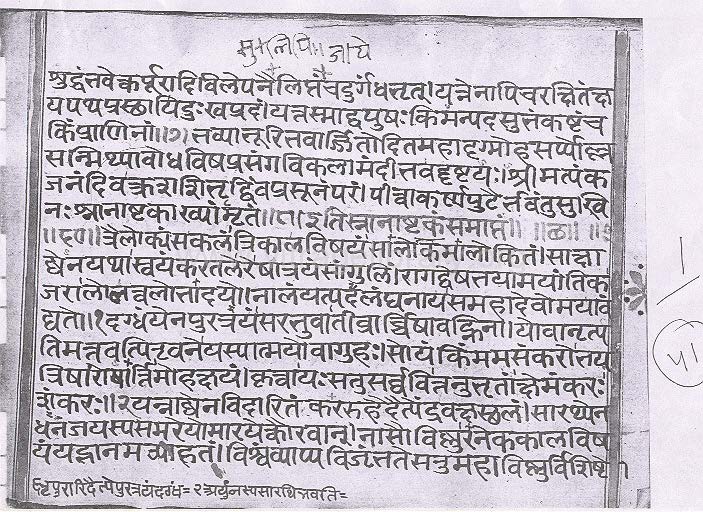 शुद्धं तवेत्कर्पूरादिविलेपनैर्लिप्तं च दुर्गंधतृत्। यत्नेनापि च रक्षितं क्ष
यपथप्रस्छायि दुःखप्रदं। यत्तस्माद्वपुषः किमन्यदसुतं कष्टं च
किं प्राणिनां॥७॥ तव्यातूरितवार्जितोदितमहादृग्मोहसर्प्पोल्लस
सन्मिथ्याबोधविषप्रसंगविकला मंदीतवद्दृष्टयः। श्रीमत्पंक
जनंदिवक्त्रशशितृद्विंबप्रसूनं परं। पीत्वा कर्ण्णपुटैर्त्तवंतु सुखि
नः श्नानाष्टकाख्यामृतं॥८॥ इति स्नानाष्टकं समाप्तं॥ ॥छ॥
॥६०॥ त्रैलोक्यं सकलं त्रिकालविषयं सालोकमालोकितं। साक्षा
द्येन यथा स्वयं करतले रेषात्रयं सांगुलिं। रागद्वेषतयामयांतक
जरालोलत्वलोत्तादयो। नालं यत्पदलंघनाय स महादेवो मया वं
द्यते॥१ दग्धं येन पुरत्रयं सरतुवा तीव्रार्च्चिषा वह्निना। यो वा नृत्य
ति मत्तवत्पितृवने यस्यात्मयो वा गुहः। सोयं किं मम संकरो तय
त्रिषारोषार्त्तिमोहक्षयं। कृत्वा यः स तु सर्व्ववित्तनुतृतां क्षेमंकरः
शंकरः॥२ यत्नाद्येन विदारितं कररुहैर्दैत्येंद्रवक्षस्छलं। सारथ्येन
धनंजयस्य समरे यो मारयत्कौरवान्। नासौ विष्णुरनेककालविष
यं यद्ज्ञानमव्याहतं। विश्वं व्याप्य विजृंतते स तु महाविष्णुर्विशिष्टो
६ त्रपुरारिदैत्येपुरत्रयंदग्धं= २ अर्युनस्यसारथिन्नवति=
५१